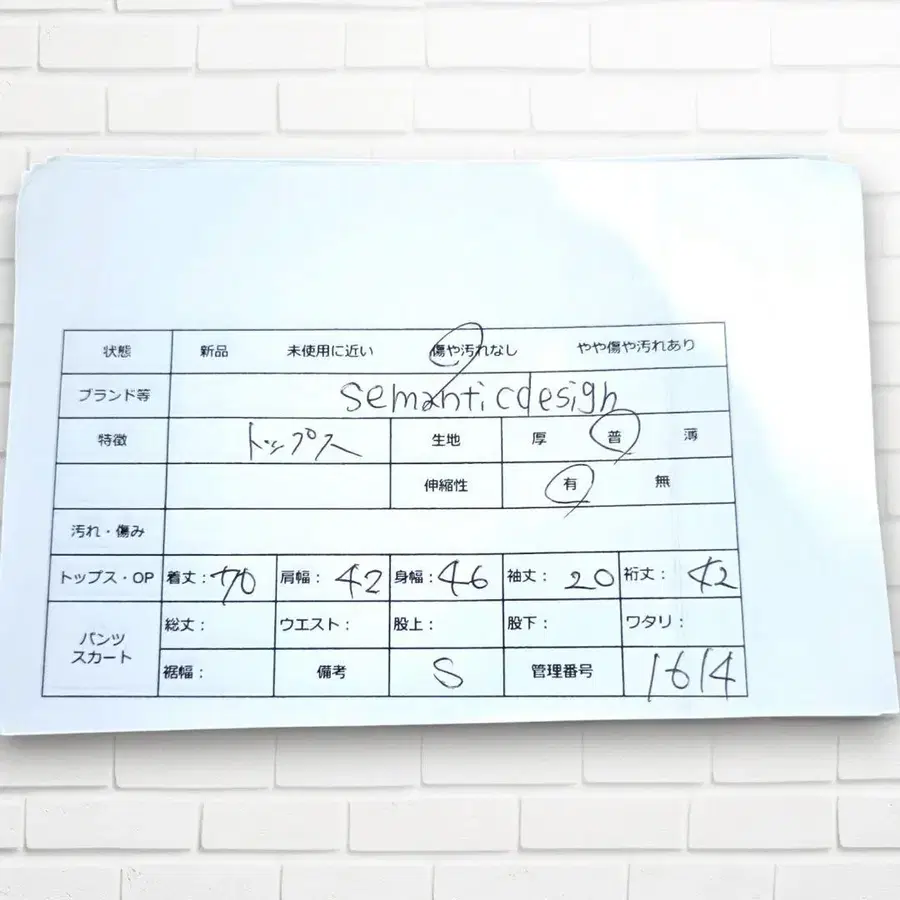 状態 新品 未使用に近い 傷や汚れなし やや傷や汚れあり
ブランド等 semanticdesign
特徴 トップス 生地 厚 普 薄
伸縮性 有 無
汚れ・傷み
トップス・OP 着丈：70 肩幅：42 身幅：46 袖丈：20 裄丈：42
パンツ スカート 総丈： ウエスト： 股上： 股下： ワタリ：
裾幅： 備考 S 管理番号 1614